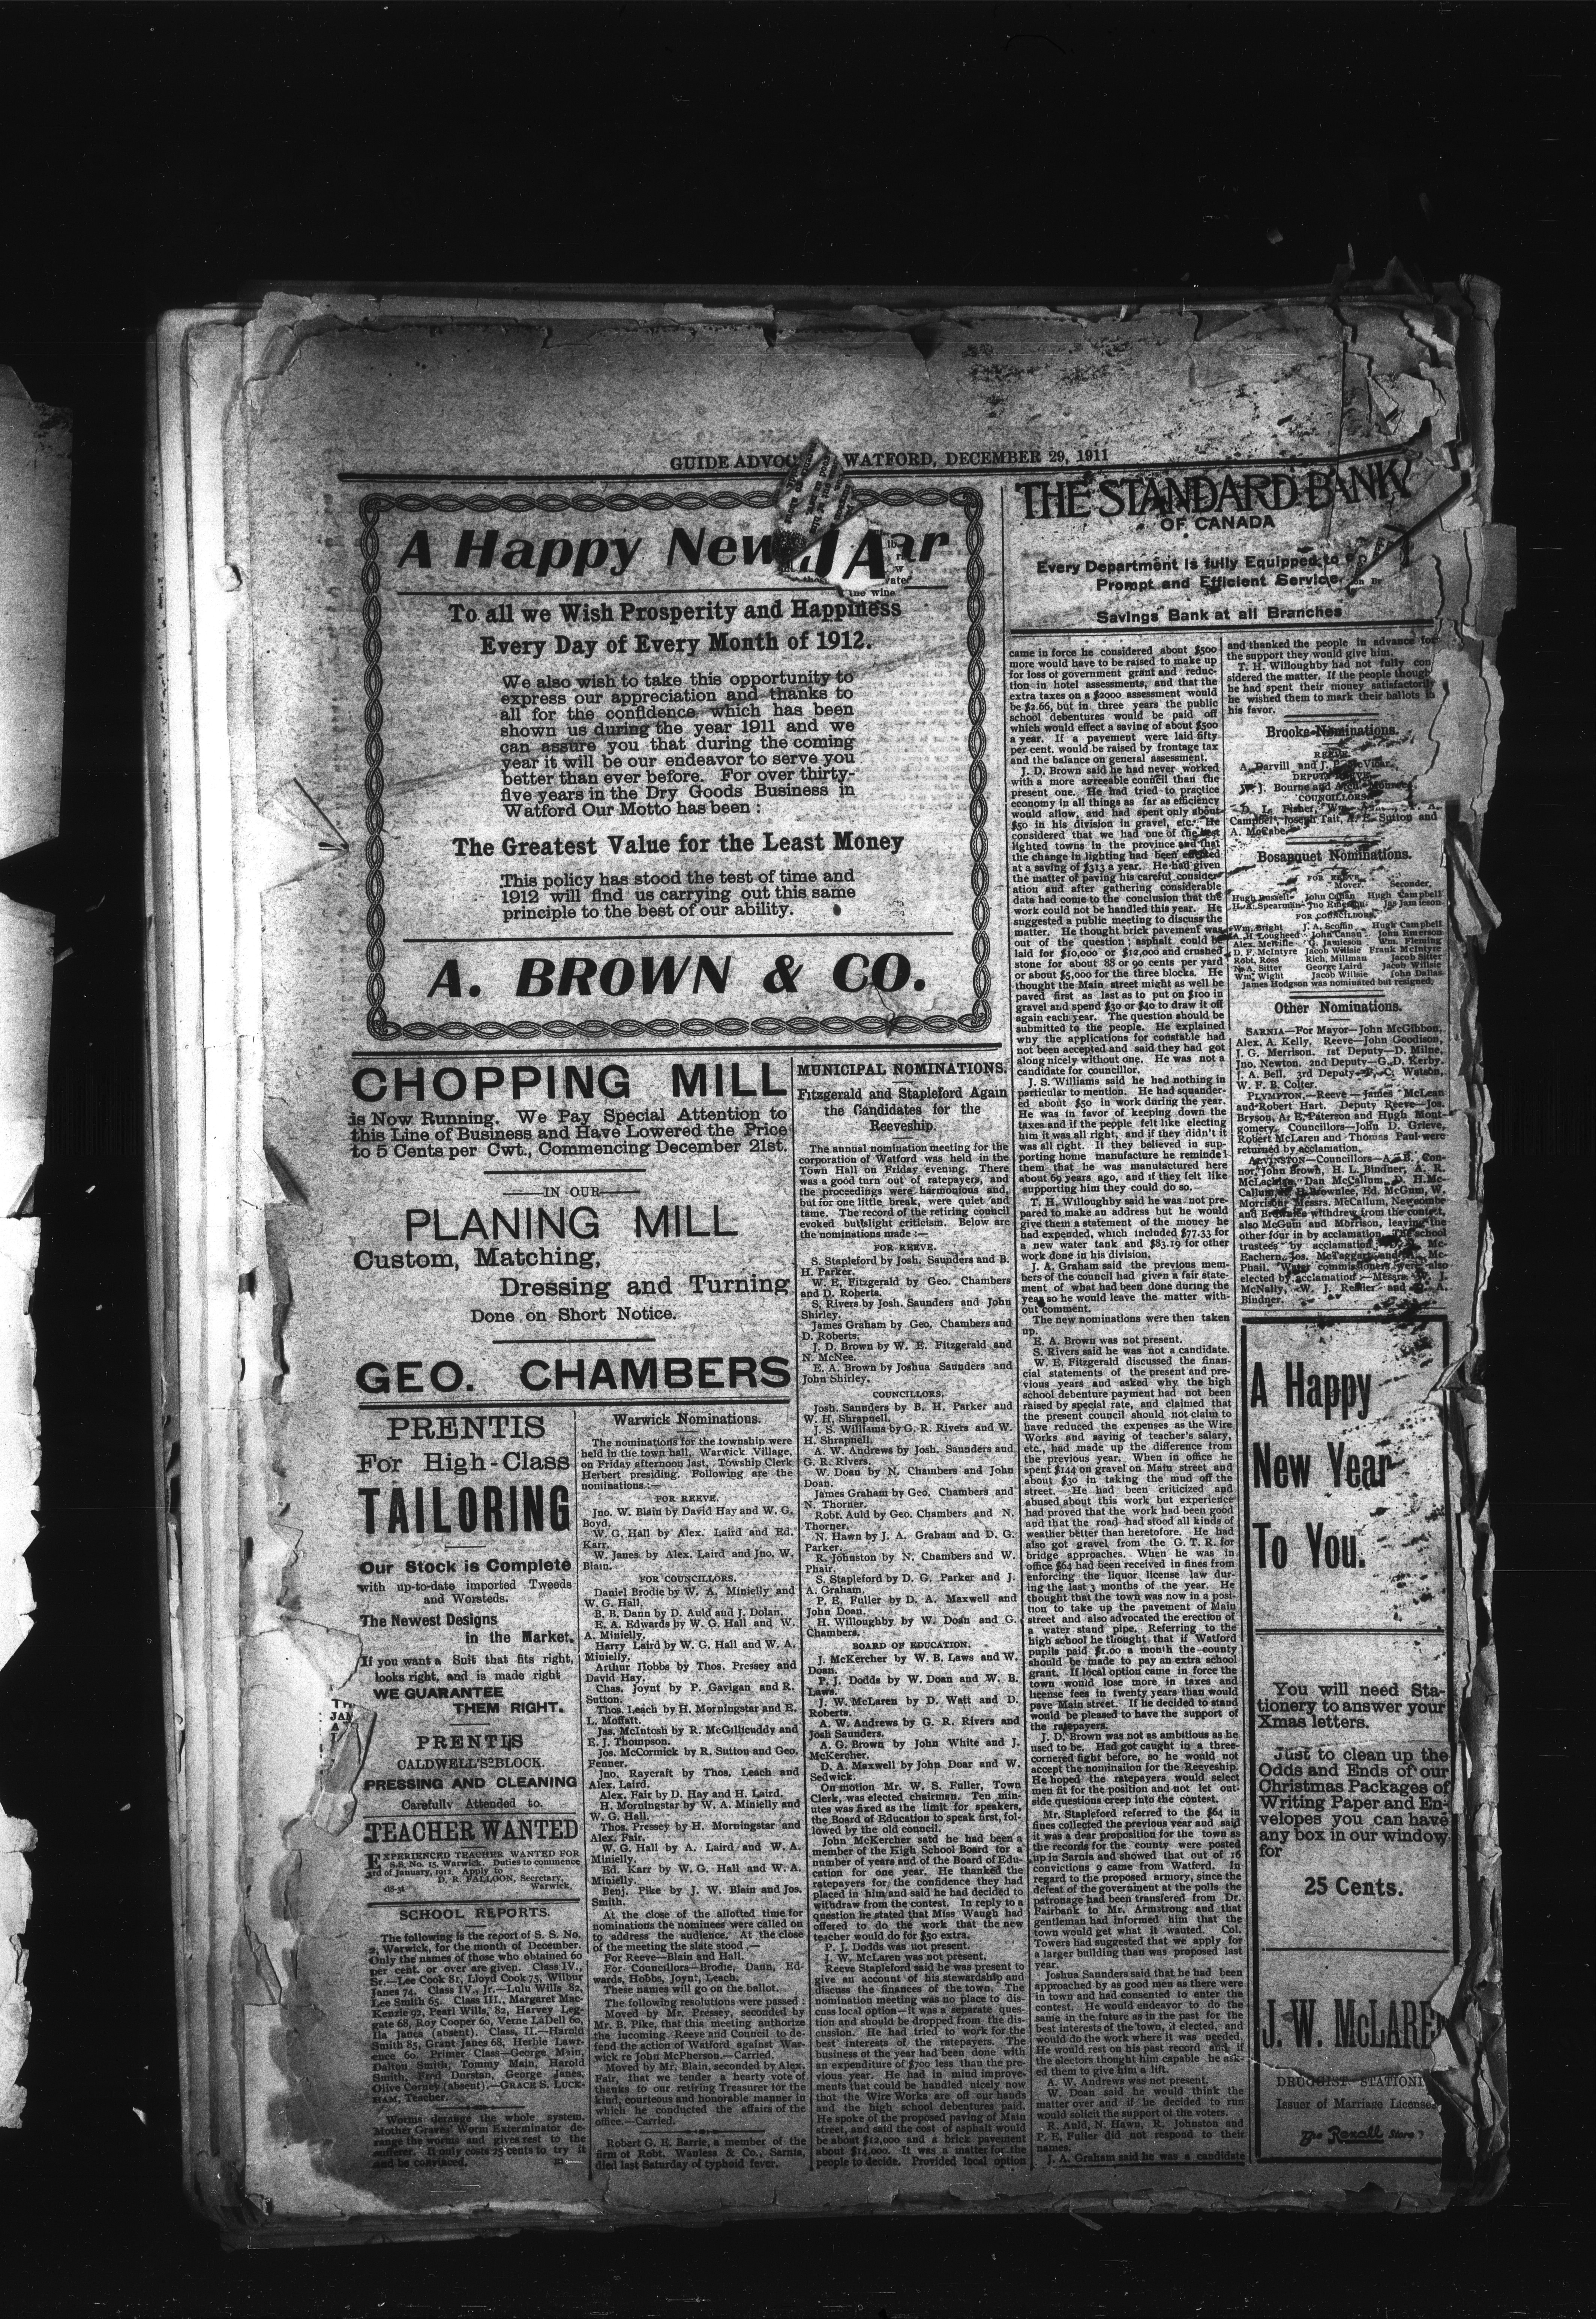 GUIDE ADVOC WATFORD, DECEMBER 29, 1911
A Happy New ar
To all we Wish Prosperity and Happiness
Every Day of Every Month of 1912.
We also wish to take this opportunity to
express our appreciation and thanks to
all for the confidence which has been
shown us during the year 1911 and we
can assure you that during the coming
year it will be our endeavor to serve you
better than ever before. For over thirty-
five years in the Dry Goods Business in
Watford Our Motto has been :
The Greatest Value for the Least Money
This policy has stood the test of time and
1912 will find us carrying out this same
principle to the best of our ability.
A. BROWN & CO.
CHOPPING MILL
is Now Running. We Pay Special Attention to
this Line of Business and Have Lowered the Price
to 5 Cents per Cwt., Commencing December 21st.
IN OUR
PLANING MILL
Custom, Matching,
Dressing and Turning
Done on Short Notice.
GEO. CHAMBERS
PRENTIS
For High-Class
TAILORING
Our Stock is Complete
with up-to-date imported Tweeds
and Worsteds.
The Newest Designs
in the Market.
If you want a Suit that fits right,
looks right, and is made right
WE GUARANTEE
THEM RIGHT.
PRENTIS
CALDWELL'S BLOCK.
PRESSING AND CLEANING
Carefully Attended to.
TEACHER WANTED
EXPERIENCED TEACHER WANTED FOR
S.S. No. 15, Warwick. Duties to commence
3rd of January, 1912. Apply to
D. R. FALLOON, Secretary,
Warwick.
SCHOOL REPORTS.
The following is the report of S. S. No.
2, Warwick, for the month of December.
Only the names of those who obtained 60
per cent. or over are given. Class IV.,
Sr.—Lee Cook 81, Lloyd Cook 75, Wilbur
Janes 74. Class IV., Jr.—Lulu Wills 82,
Lee Smith 65. Class III., Margaret Mac-
Kenzie 92, Pearl Wills, 82, Harvey Leg-
gate 68, Roy Cooper 60, Verne LaDell 60,
Ila Janes (absent). Class, II.—Harold
Smith 85, Grant Janes 68, Herbie Lawr-
ence 60. Primer Class—George Main,
Dalton Smith, Tommy Main, Harold
Smith, Fred Dorstan, George Janes,
Olive Corney (absent).—GRACE S. LUCK-
HAM, Teacher.
Worms derange the whole system.
Mother Graves' Worm Exterminator de-
range the worms and gives rest to the
sufferer. It only costs 25 cents to try it
and be convinced. m
Warwick Nominations.
The nominations for the township were
held in the town hall, Warwick Village,
on Friday afternoon last, Towship Clerk
Herbert presiding. Following are the
nominations :—
FOR REEVE.
Jno. W. Blain by David Hay and W. G.
Boyd.
W. G. Hall by Alex. Laird and Ed.
Karr.
W. Janes by Alex. Laird and Jno. W.
Blain.
FOR COUNCILLORS.
Daniel Brodie by W. A. Minielly and
W. G. Hall.
B. B. Dann by D. Auld and J. Dolan.
E. A. Edwards by W. G. Hall and W.
A. Minielly.
Harry Laird by W. G. Hall and W. A.
Minielly.
Arthur Hobbs by Thos. Pressey and
David Hay.
Chas. Joynt by P. Gavigan and R.
Sutton.
Thos. Leach by H. Morningstar and E.
L. Moffatt.
Jas. McIntosh by R. McGillicuddy and
E. J. Thompson.
Jos. McCormick by R. Sutton and Geo.
Fenner.
Jno. Raycraft by Thos. Leach and
Alex. Laird.
Alex. Fair by D. Hay and H. Laird.
H. Morningstar by W. A. Minielly and
W. G. Hall.
Thos. Pressey by H. Morningstar and
Alex. Fair.
W. G. Hall by A. Laird and W. A.
Minielly.
Ed. Karr by W. G. Hall and W. A.
Minielly.
Benj. Pike by J. W. Blain and Jos.
Smith.
At the close of the allotted time for
nominations the nominees were called on
to address the audience. At the close
of the meeting the slate stood,—
For Reeve—Blain and Hall.
For Councillors—Brodie, Dann, Ed-
wards, Hobbs, Joynt, Leach.
These names will go on the ballot.
The following resolutions were passed :
Moved by Mr. Pressey, seconded by
Mr. B. Pike, that this meeting authorize
the incoming Reeve and Council to de-
fend the action of Watford against War-
wick re John McPherson.—Carried.
Moved by Mr. Blain, seconded by Alex.
Fair, that we tender a hearty vote of
thanks to our retiring Treasurer for the
kind, courteous and honorable manner in
which he conducted the affairs of the
office.—Carried.
Robert G. E. Barrie, a member of the
firm of Robt. Wanless & Co., Sarnia,
died last Saturday of typhoid fever.
MUNICIPAL NOMINATIONS.
Fitzgerald and Stapleford Again
the Candidates for the
Reeveship.
The annual nomination meeting for the
corporation of Watford was held in the
Town Hall on Friday evening. There
was a good turn out of ratepayers, and
the proceedings were harmonious and,
but for one little break, were quiet and
tame. The record of the retiring council
evoked but slight criticism. Below are
the nominations made :—
FOR REEVE.
S. Stapleford by Josh. Saunders and B.
H. Parker.
W. E. Fitzgerald by Geo. Chambers
and D. Roberts.
S. Rivers by Josh. Saunders and John
Shirley.
James Graham by Geo. Chambers and
D. Roberts.
J. D. Brown by W. E. Fitzgerald and
N. McNee.
E. A. Brown by Joshua Saunders and
John Shirley.
COUNCILLORS.
Josh. Saunders by B. H. Parker and
W. H. Shrapnell.
J. S. Williams by G. R. Rivers and W.
H. Shrapnell.
A. W. Andrews by Josh. Saunders and
G. R. Rivers.
W. Doan by N. Chambers and John
Doan.
James Graham by Geo. Chambers and
N. Thorner.
Robt. Auld by Geo. Chambers and N.
Thorner.
N. Hawn by J. A. Graham and D. G.
Parker.
R. Johnston by N. Chambers and W.
Phair.
S. Stapleford by D. G. Parker and J.
A. Graham.
P. E. Fuller by D. A. Maxwell and
John Doan.
H. Willoughby by W. Doan and G.
Chambers.
BOARD OF EDUCATION.
J. McKercher by W. B. Laws and W.
Doan.
P. J. Dodds by W. Doan and W. B.
Laws.
J. W. McLaren by D. Watt and D.
Roberts.
A. W. Andrews by G. R. Rivers and
Josh Saunders.
A. G. Brown by John White and J.
McKercher.
D. A. Maxwell by John Doar and W.
Sedwick.
On motion Mr. W. S. Fuller, Town
Clerk, was elected chairman. Ten min-
utes was fixed as the limit for speakers,
the Board of Education to speak first, fol-
lowed by the old council.
John McKercher satd he had been a
member of the High School Board for a
number of years and of the Board of Edu-
cation for one year. He thanked the
ratepayers for the confidence they had
placed in him and said he had decided to
withdraw from the contest. In reply to a
question he stated that Miss Waugh had
offered to do the work that the new
teacher would do for $50 extra.
P. J. Dodds was not present.
J. W. McLaren was not present.
Reeve Stapleford said he was present to
give an account of his stewardship and
discuss the finances of the town. The
nomination meeting was no place to dis-
cuss local option—it was a separate ques-
tion and should be dropped from the dis-
cussion. He had tried to work for the
best interests of the ratepayers. The
business of the year had been done with
an expenditure of $700 less than the pre-
vious year. He had in mind improve-
ments that could be handled nicely now
that the Wire Works are off our hands
and the high school debentures paid.
He spoke of the proposed paving of Main
street, and said the cost of asphalt would
be about $12,000 and a brick pavement
about $14,000. It was a matter for the
people to decide. Provided local option
THE STANDARD BANK
OF CANADA
Every Department is fully Equipped to
Prompt and Efficient Service
Savings Bank at all Branches
came in force he considered about $500
more would have to be raised to make up
for loss of government grant and reduc-
tion in hotel assessments, and that the
extra taxes on a $2000 assessment would
be $2.66, but in three years the public
school debentures would be paid off
which would effect a saving of about $500
a year. If a pavement were laid fifty
per cent. would be raised by frontage tax
and the balance on general assessment.
J. D. Brown said he had never worked
with a more agreeable council than the
present one. He had tried to practice
economy in all things as far as efficiency
would allow, and had spent only about
$50 in his division in gravel, etc. He
considered that we had one of the best
lighted towns in the province and that
the change in lighting had been effected
at a saving of $313 a year. He had given
the matter of paving his careful consider-
ation and after gathering considerable
data had come to the conclusion that the
work could not be handled this year. He
suggested a public meeting to discuss the
matter. He thought brick pavement was
out of the question ; asphalt could be
laid for $10,000 or $12,000 and crushed
stone for about 88 or 90 cents per yard
or about $5,000 for the three blocks. He
thought the Main street might as well be
paved first as last as to put on $100 in
gravel and spend $30 or $40 to draw it off
again each year. The question should be
submitted to the people. He explained
why the applications for constable had
not been accepted and said they had got
along nicely without one. He was not a
candidate for councillor.
J. S. Williams said he had nothing in
particular to mention. He had squander-
ed about $50 in work during the year.
He was in favor of keeping down the
taxes and if the people felt like electing
him it was all right, and if they didn't it
was all right. If they believed in sup-
porting home manufacture he reminded
them that he was manufactured here
about 69 years ago, and if they felt like
supporting him they could do so.
T. H. Willoughby said he was not pre-
pared to make an address but he would
give them a statement of the money he
had expended, which included $77.33 for
a new water tank and $83.19 for other
work done in his division.
J. A. Graham said the previous mem-
bers of the council had given a fair state-
ment of what had been done during the
year so he would leave the matter with-
out comment.
The new nominations were then taken
up.
E. A. Brown was not present.
S. Rivers said he was not a candidate.
W. E. Fitzgerald discussed the finan-
cial statements of the present and pre-
vious years and asked why the high
school debenture payment had not been
raised by special rate, and claimed that
the present council should not claim to
have reduced the expenses as the Wire
Works and saving of teacher's salary,
etc., had made up the difference from
the previous year. When in office he
spent $144 on gravel on Main street and
about $30 in taking the mud off the
street. He had been criticized and
abused about this work but experience
had proved that the work had been good
and that the road had stood all kinds of
weather better than heretofore. He had
also got gravel from the G. T. R. for
bridge approaches. When he was in
office $64 had been received in fines from
enforcing the liquor license law dur-
ing the last 3 months of the year. He
thought that the town was now in a posi-
tion to take up the pavement of Main
street and also advocated the erection of
a water stand pipe. Referring to the
high school he thought that if Watford
pupils paid $1.00 a month the county
should be made to pay an extra school
grant. If local option came in force the
town would lose more in taxes and
license fees in twenty years than would
pave Main street. If he decided to stand
would be pleased to have the support of
the ratepayers.
J. D. Brown was not as ambitious as he
used to be. Had got caught in a three-
cornered fight before, so he would not
accept the nominaiion for the Reeveship.
He hoped the ratepayers would select
men fit for the position and not let out-
side questions creep into the contest.
Mr. Stapleford referred to the $64 in
fines collected the previous year and said
it was a dear proposition for the town as
the records for the county were posted
up in Sarnia and showed that out of 16
convictions 9 came from Watford. In-
regard to the proposed armory, since the
defeat of the government at the polls the
patronage had been transfered from Dr.
Fairbank to Mr. Armstrong and that
gentleman had informed him that the
town would get what it wanted. Col.
Towers had suggested that we apply for
a larger building than was proposed last
year.
Joshua Saunders said that he had been
approached by as good men as there were
in town and had consented to enter the
contest. He would endeavor to do the
same in the future as in the past for the
best interests of the town, if elected, and
would do the work where it was needed.
He would rest on his past record and if
the electors thought him capable he ask-
ed them to give him a lift.
A. W. Andrews was not present.
W. Doan said he would think the
matter over and if he decided to run
would solicit the support of the voters.
R. Auld, N. Hawn, R. Johnston and
P. E. Fuller did not respond to their
names.
J. A. Graham said he was a candidate
and thanked the people in advance for
the support they would give him.
T. H. Willoughby had not fully con-
sidered the matter. If the people though
he had spent their money satisfactorily
he wished them to mark their ballots in
his favor.
Brooke Nominations.
REEVE
A. Darvill and J.
DEPUTY REEVE
W. J. Bourne and
COUNCILLORS
D. L. Fisher, Wm. A.
Campbel, Joseph Tait, A. E. Sutton and
A. McCabe.
Bosanquet Nominations.
FOR REEVE
Mover. Seconder.
Hugh Russell John Canan Hugh Campbell
H. A. Spearman Jas Jamieson
FOR COUNCILLORS.
Wm. Bright J. A. Scoffin Hugh Campbell
A. H. Lougheed John Canan John Emerson
Alex. G. Jamieson Wm. Fleming
D. F. McIntyre Jacob Willsie Frank McIntyre
Robt. Ross Rich. Millman Jacob Sitter
N. A. Sitter George Laird Jacob Willsie
Wm. Wight Jacob Willsie John Dallas
James Hodgson was nominated but resigned.
Other Nominations.
SARNIA—For Mayor—John McGibbon,
Alex. A. Kelly, Reeve—John Goodison,
J. G. Merrison. 1st Deputy—D. Milne,
Jno. Newton. 2nd Deputy—G. D. Kerby,
J. A. Bell. 3rd Deputy— C. Watson,
W. F. B. Colter.
PLYMPTON.—Reeve—James McLean
and Robert Hart. Deputy Reeve—Jos.
Bryson, A. E. Paterson and Hugh Mont-
gomery. Councillors—John D. Grieve,
Robert McLaren and Thomas Paul were
returned by acclamation.
ALVINSTON—Councillors—A. B. Con-
nor, John Brown, H. L. Bindner, A. R.
McLachlan, Dan McCallum, D. H. Mc-
Callum, Brownlee, Ed. McGum, W.
Morrison. Messrs. McCallum, Newcombe
and Brownlee withdrew from the contest,
also McGum and Morrison, leaving the
other four in by acclamation. The school
trustees by acclamation, Mc-
Eachern, Jos. McTaggart and Mc-
Phail. Water commissioners were also
elected by acclamation :—Messrs. W. J.
McNally, W. J. and A.
Bindner.
A Happy
New Year
To You.
You will need Sta-
tionery to answer your
Xmas letters.
Just to clean up the
Odds and Ends of our
Christmas Packages of
Writing Paper and En-
velopes you can have
any box in our window
for
25 Cents.
J. W. McLARE
DRUGGIST STATION
Issuer of Marriage Licenses
The Rexall Store